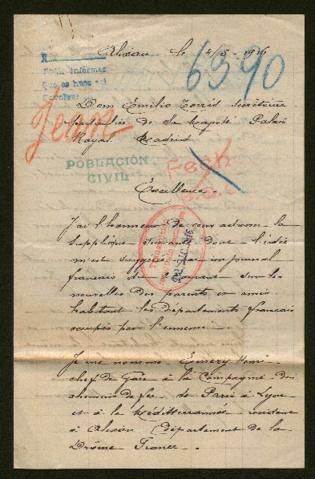 le 2/5-1916
6390
Jean
Dom Emilio Torrès Secrétaire
de Sa Majesté Palais
Royal Madrid
POBLACIÓN
CIVIL
Excellence.
J'ai l'honneur de vous adresser la
supplique suivante dont l'idée
m'est suggérée par un journal
français de sur les
nouvelles des parents et amis
habitant les départements français
occupés par l'ennemi.
Je me nomme Henri
chef de Gare à la Compagnie des
chemins de fer de Paris à Lyon
et à la Méditerranée
à Alixan Département de la
Drôme France.